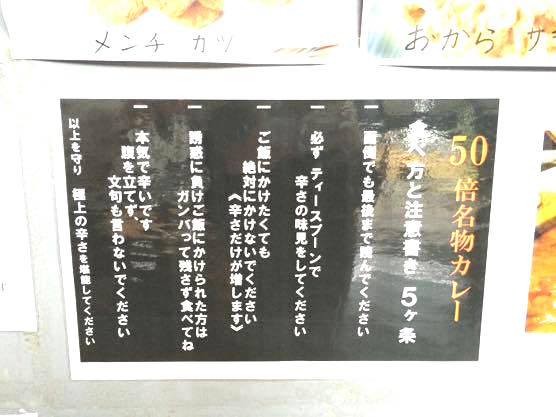 メンチ カツ
おから サ
50倍名物カレー
食べ方と注意書き 5ヶ条
一 面倒でも最後まで読んでください
一 必ず ティースプーンで
辛さの味見をしてください
一 ご飯にかけたくても
絶対にかけないでください
《辛さだけが増します》
一 誘惑に負けご飯にかけられた方は
ガンバって残さず食べてね
一 本気で辛いです
腹を立てず、
文句も言わないでください
以上を守り 極上の辛さを堪能してください